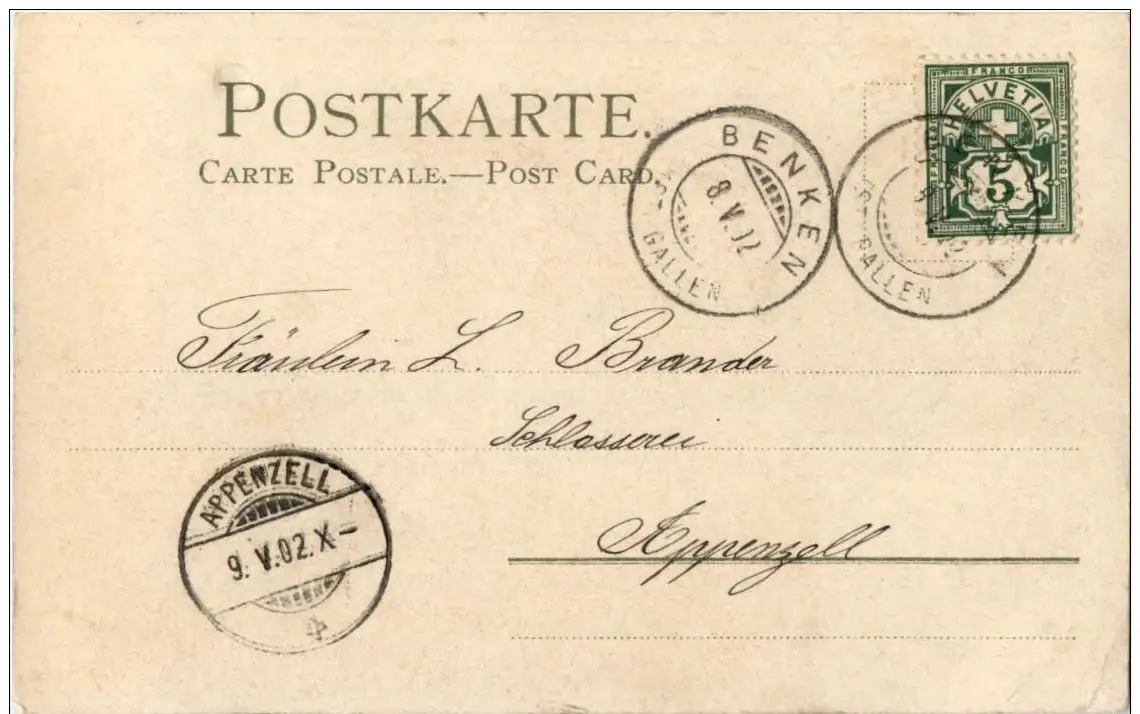 POSTKARTE.
CARTE POSTALE.—POST CARD.
FRANCO
HELVETIA
FRANCO
FRANCO
5
BENKEN
8.V.02
ST. GALLEN
GALLEN
Fräulein L. Brander
Schlosserei
Appenzell
APPENZELL
9. V.02.X–